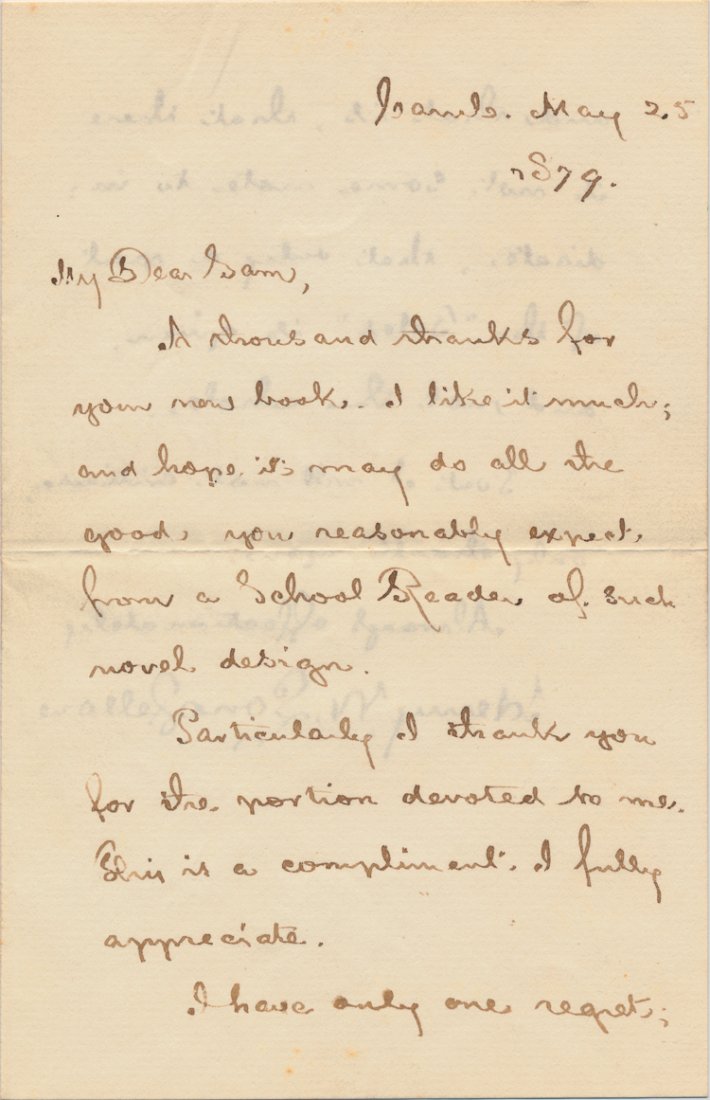 Camb. May 25
1879.
My Dear Sam,
A thousand thanks for
your new book. I like it much;
and hope it may do all the
good, you reasonably expect
from a School Reader of such
novel design.
Particularly I thank you
for the portion devoted to me.
This is a compliment I fully
appreciate.
I have only one regret;